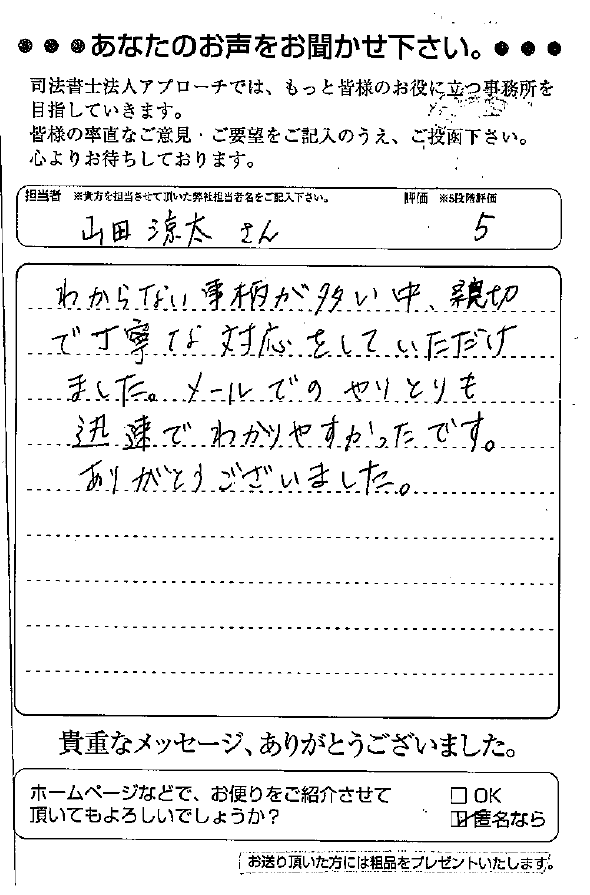 ●●●あなたのお声をお聞かせ下さい。●●●
司法書士法人アプローチでは、もっと皆様のお役に立つ事務所を
目指していきます。
皆様の率直なご意見・ご要望をご記入のうえ、ご投函下さい。
心よりお待ちしております。
担当者 ※貴方を担当させて頂いた弊社担当者名をご記入下さい。 評価 ※5段階評価
山田涼太 さん 5
わからない事柄が多い中、親切
で丁寧な対応をしていただけ
ました。メールでのやりとりも
迅速でわかりやすかったです。
ありがとうございました。
貴重なメッセージ、ありがとうございました。
ホームページなどで、お便りをご紹介させて
頂いてもよろしいでしょうか?
□ OK
☑ 匿名なら
お送り頂いた方には粗品をプレゼントいたします。